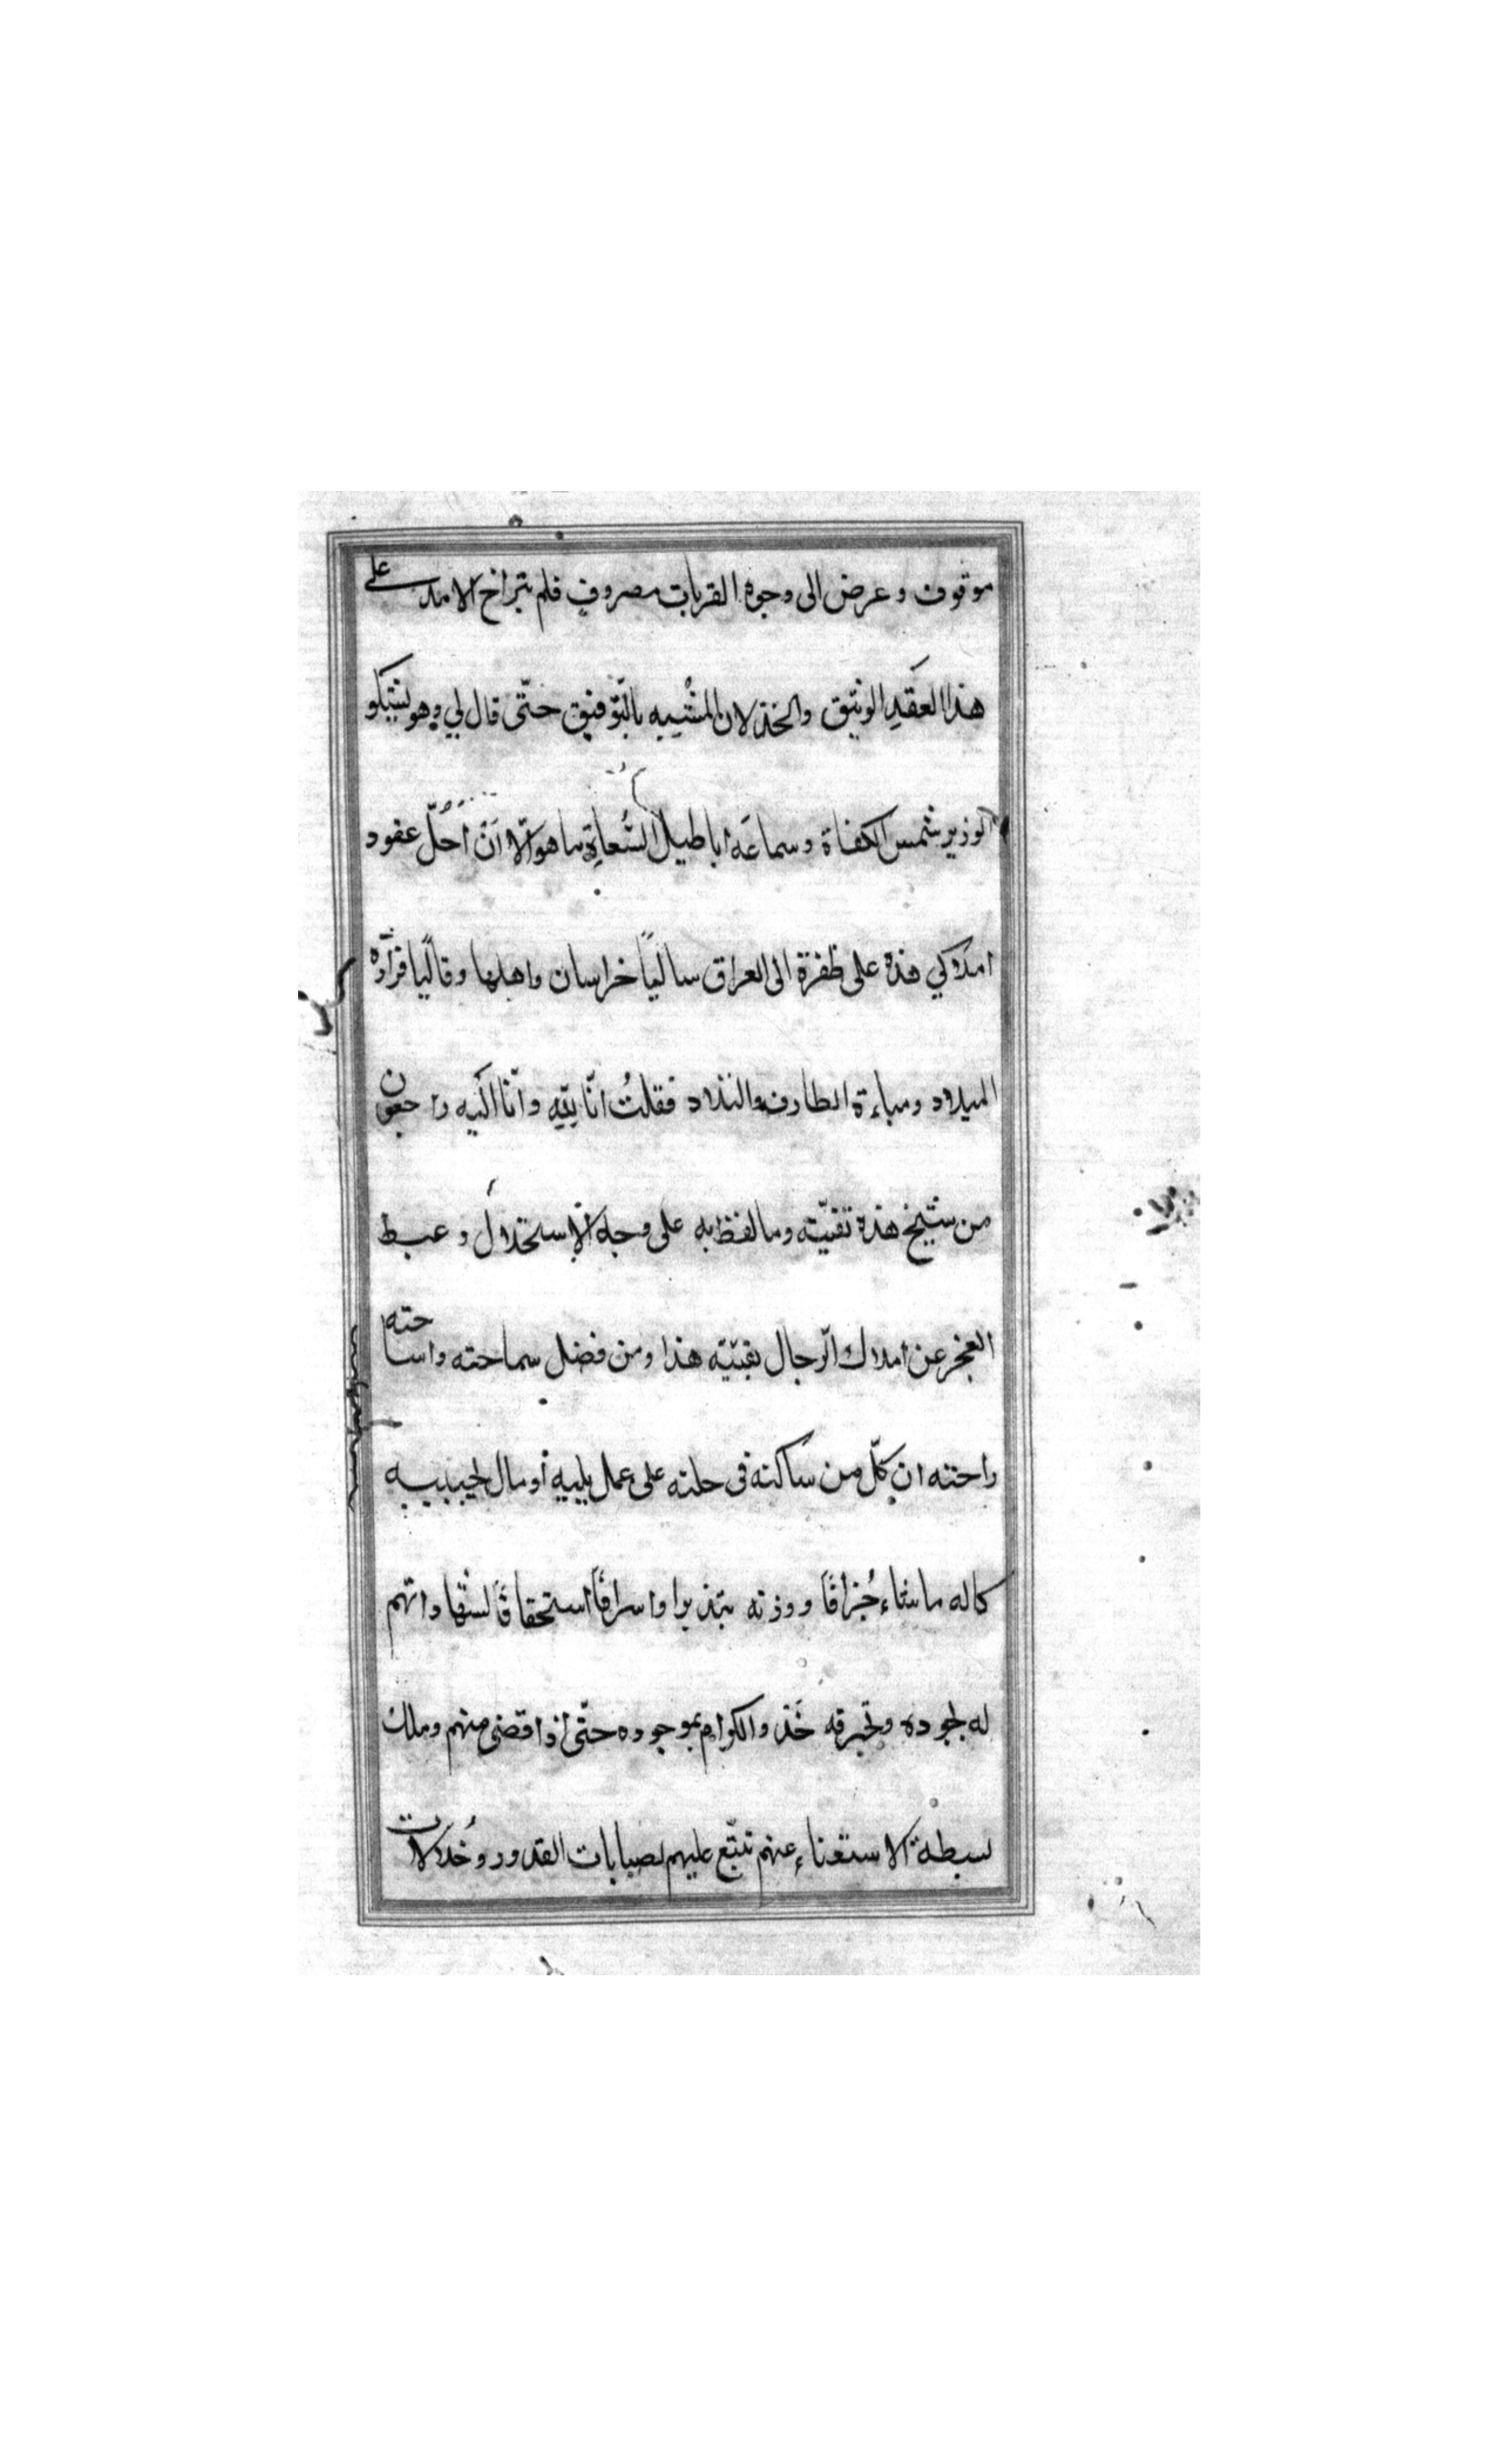 موقوف وعرض الى وجوه القربات مصروف فلم يتراخ الامد على
هذا العقد الوثيق والخذلان المشبه بالتّوفيق حتّى قال لي وهو يشكو
الوزير شمس الكفاة وسماعَه اباطيل السُّعاة ما هو الّا انْ اَحُلّ عقود
املاكي هذه على ظفرة الى العراق ساليًا خراسان واهلها وقاليًا قرارة
الميلاد ومباءة الطارف والتلاد فقلتُ انّا للّه وانّا اليه راجعون
من شيخ هذه تقيّته وما لفظ به على وجه الاستحلال وعبط
العجز عن املاك الرّجال بقيّته هذا ومن فضل سماحته واساحته
راحته ان كلّ من ساكنه في حلته على عمل يليه أو مال يجبيه
كاله ما شاء جُزافًا ووزنه تبذيرا واسرافًا استحقاقًا لشفاواتهم
له بجوده وتخرقه خَذ والكرام بموجوده حتّى اذا قضى منهم وملك
بسطة الاستغناء عنهم تتبّع عليهم صبابات القدور وخُلالات